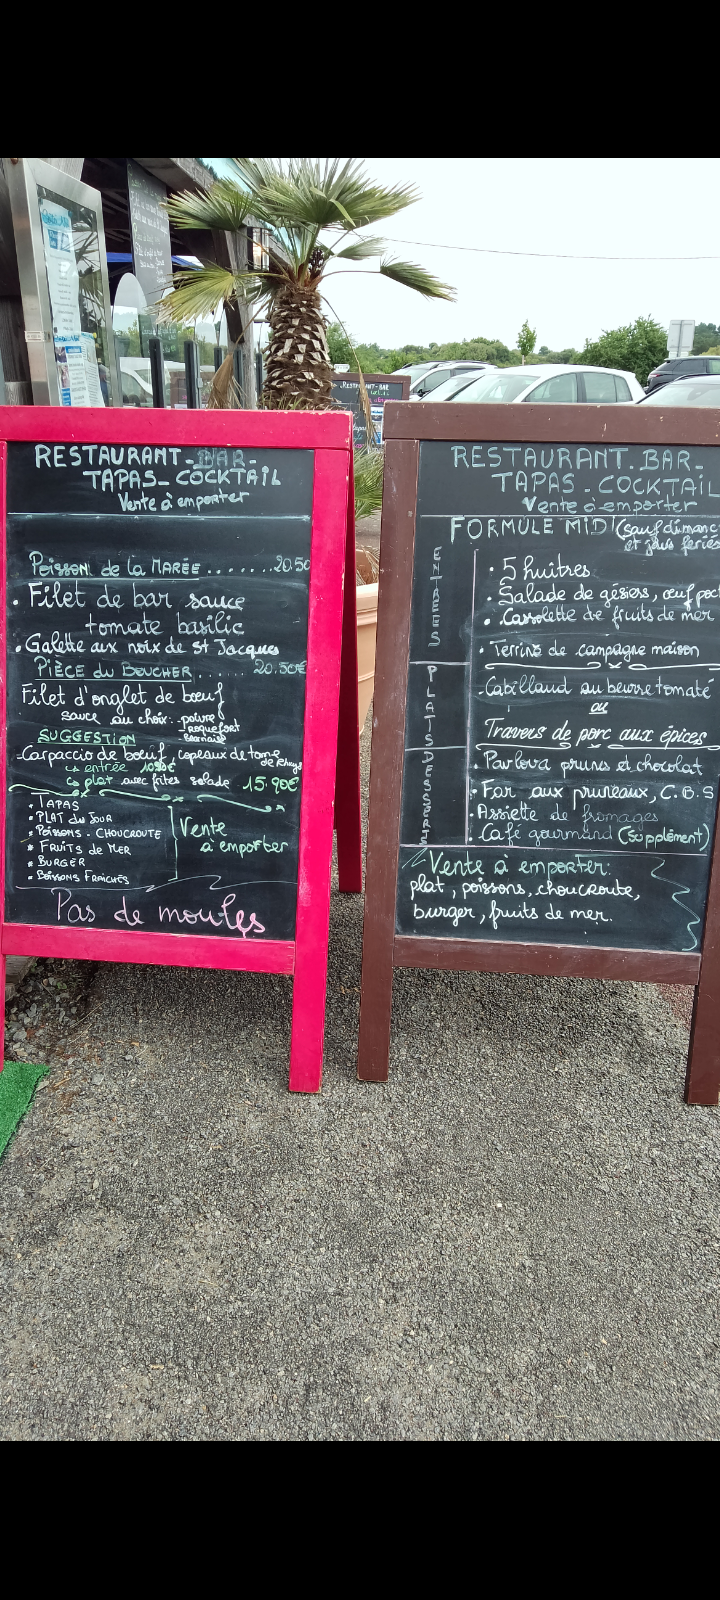 RESTAURANT-BAR-
TAPAS-COCKTAIL
Vente à emporter
Poisson de la MARÉE ........20.50
. Filet de bar sauce
tomate basilic
. Galette aux noix de St Jacques
PIÈCE du BOUCHER ...... 20.50€
Filet d'onglet de bœuf
sauce au choix: -poivre
-roquefort
-Bearnaise
SUGGESTION
-Carpaccio de bœuf, copeaux de tome
de Rhuys
↳ entrée
↳ plat avec frites salade 15.90€
. TAPAS
. PLAT du JOUR
. POISSONS - CHOUCROUTE
. FRUITS de MER
. BURGER
. BOISSONS FRAICHES
Vente
à emporter
Pas de moules
RESTAURANT-BAR
RESTAURANT.BAR-
TAPAS.COCKTAIL
Vente à emporter
FORMULE MIDI (sauf dimanc
et jours feriés
ENTREES
. 5 huîtres
. Salade de gésiers, œuf poc
. Cassolette de fruits de mer
. Terrine de campagne maison
PLATS
-Cabillaud au beurre tomaté
ou
Travers de porc aux épices
DESSERTS
. Pavlova prunes et chocolat
. Far aux pruneaux, C.B.S
. Assiette de fromages
. Café gourmand (supplément)
Vente à emporter:
plat, poissons, choucroute,
burger, fruits de mer.